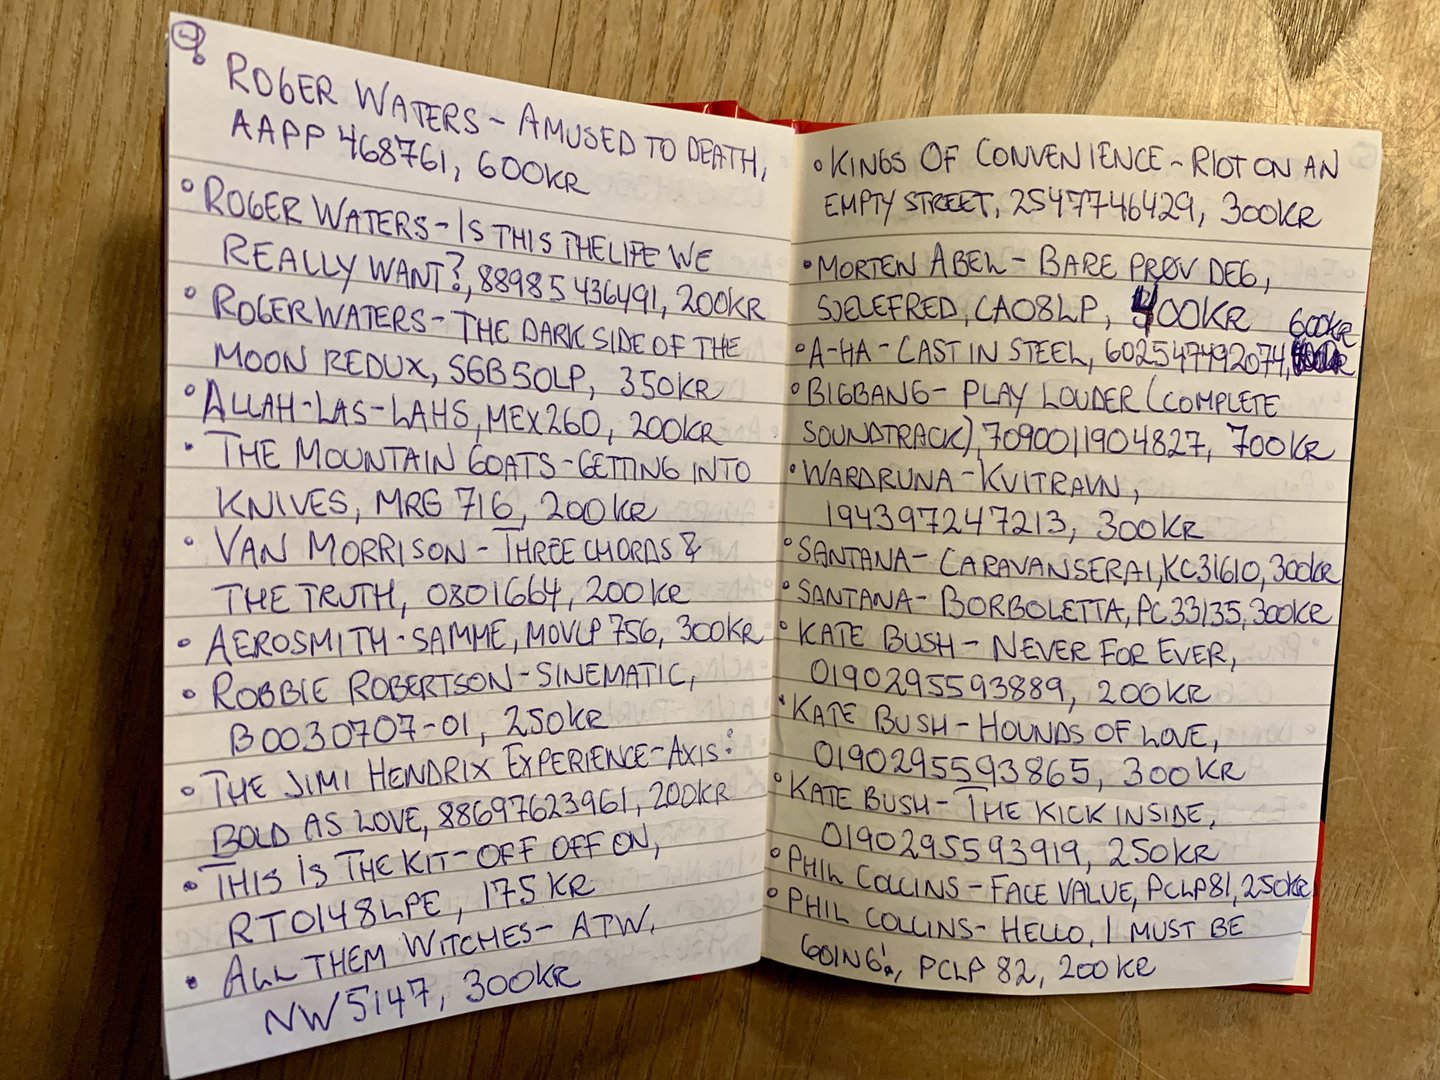 • ROGER WATERS - AMUSED TO DEATH,
AAPP 468761, 600KR
• ROGER WATERS - IS THIS THE LIFE WE
REALLY WANT?, 88985436491, 200KR
• ROGER WATERS - THE DARK SIDE OF THE
MOON REDUX, SGB50LP, 350KR
• ALLAH-LAS - LAHS, MEX260, 200KR
• THE MOUNTAIN GOATS - GETTING INTO
KNIVES, MRG 716, 200KR
• VAN MORRISON - THREE CHORDS &
THE TRUTH, 0801664, 200KR
• AEROSMITH - SAMME, MOVLP 756, 300KR
• ROBBIE ROBERTSON - SINEMATIC,
B0030707-01, 250KR
• THE JIMI HENDRIX EXPERIENCE - AXIS:
BOLD AS LOVE, 88697623961, 200KR
• THIS IS THE KIT - OFF OFF ON,
RT0148LPE, 175 KR
• ALL THEM WITCHES - ATW,
NW5147, 300KR
• KINGS OF CONVENIENCE - RIOT ON AN
EMPTY STREET, 2547746429, 300KR
• MORTEN ABEL - BARE PRØV DEG,
SJELEFRED, CA08LP, 400KR
600KR
• A-HA - CAST IN STEEL, 602547492074,
• BIGBANG - PLAY LOUDER (COMPLETE
SOUNDTRACK), 7090011904827, 700KR
• WARDRUNA - KVITRAVN,
194397247213, 300KR
• SANTANA - CARAVANSERAI, KC31610, 300KR
• SANTANA - BORBOLETTA, PC 33135, 300KR
• KATE BUSH - NEVER FOR EVER,
0190295593889, 200KR
• KATE BUSH - HOUNDS OF LOVE,
0190295593865, 300KR
• KATE BUSH - THE KICK INSIDE,
0190295593919, 250KR
• PHIL COLLINS - FACE VALUE, PCLP81, 250KR
• PHIL COLLINS - HELLO, I MUST BE
GOING!, PCLP 82, 200KR